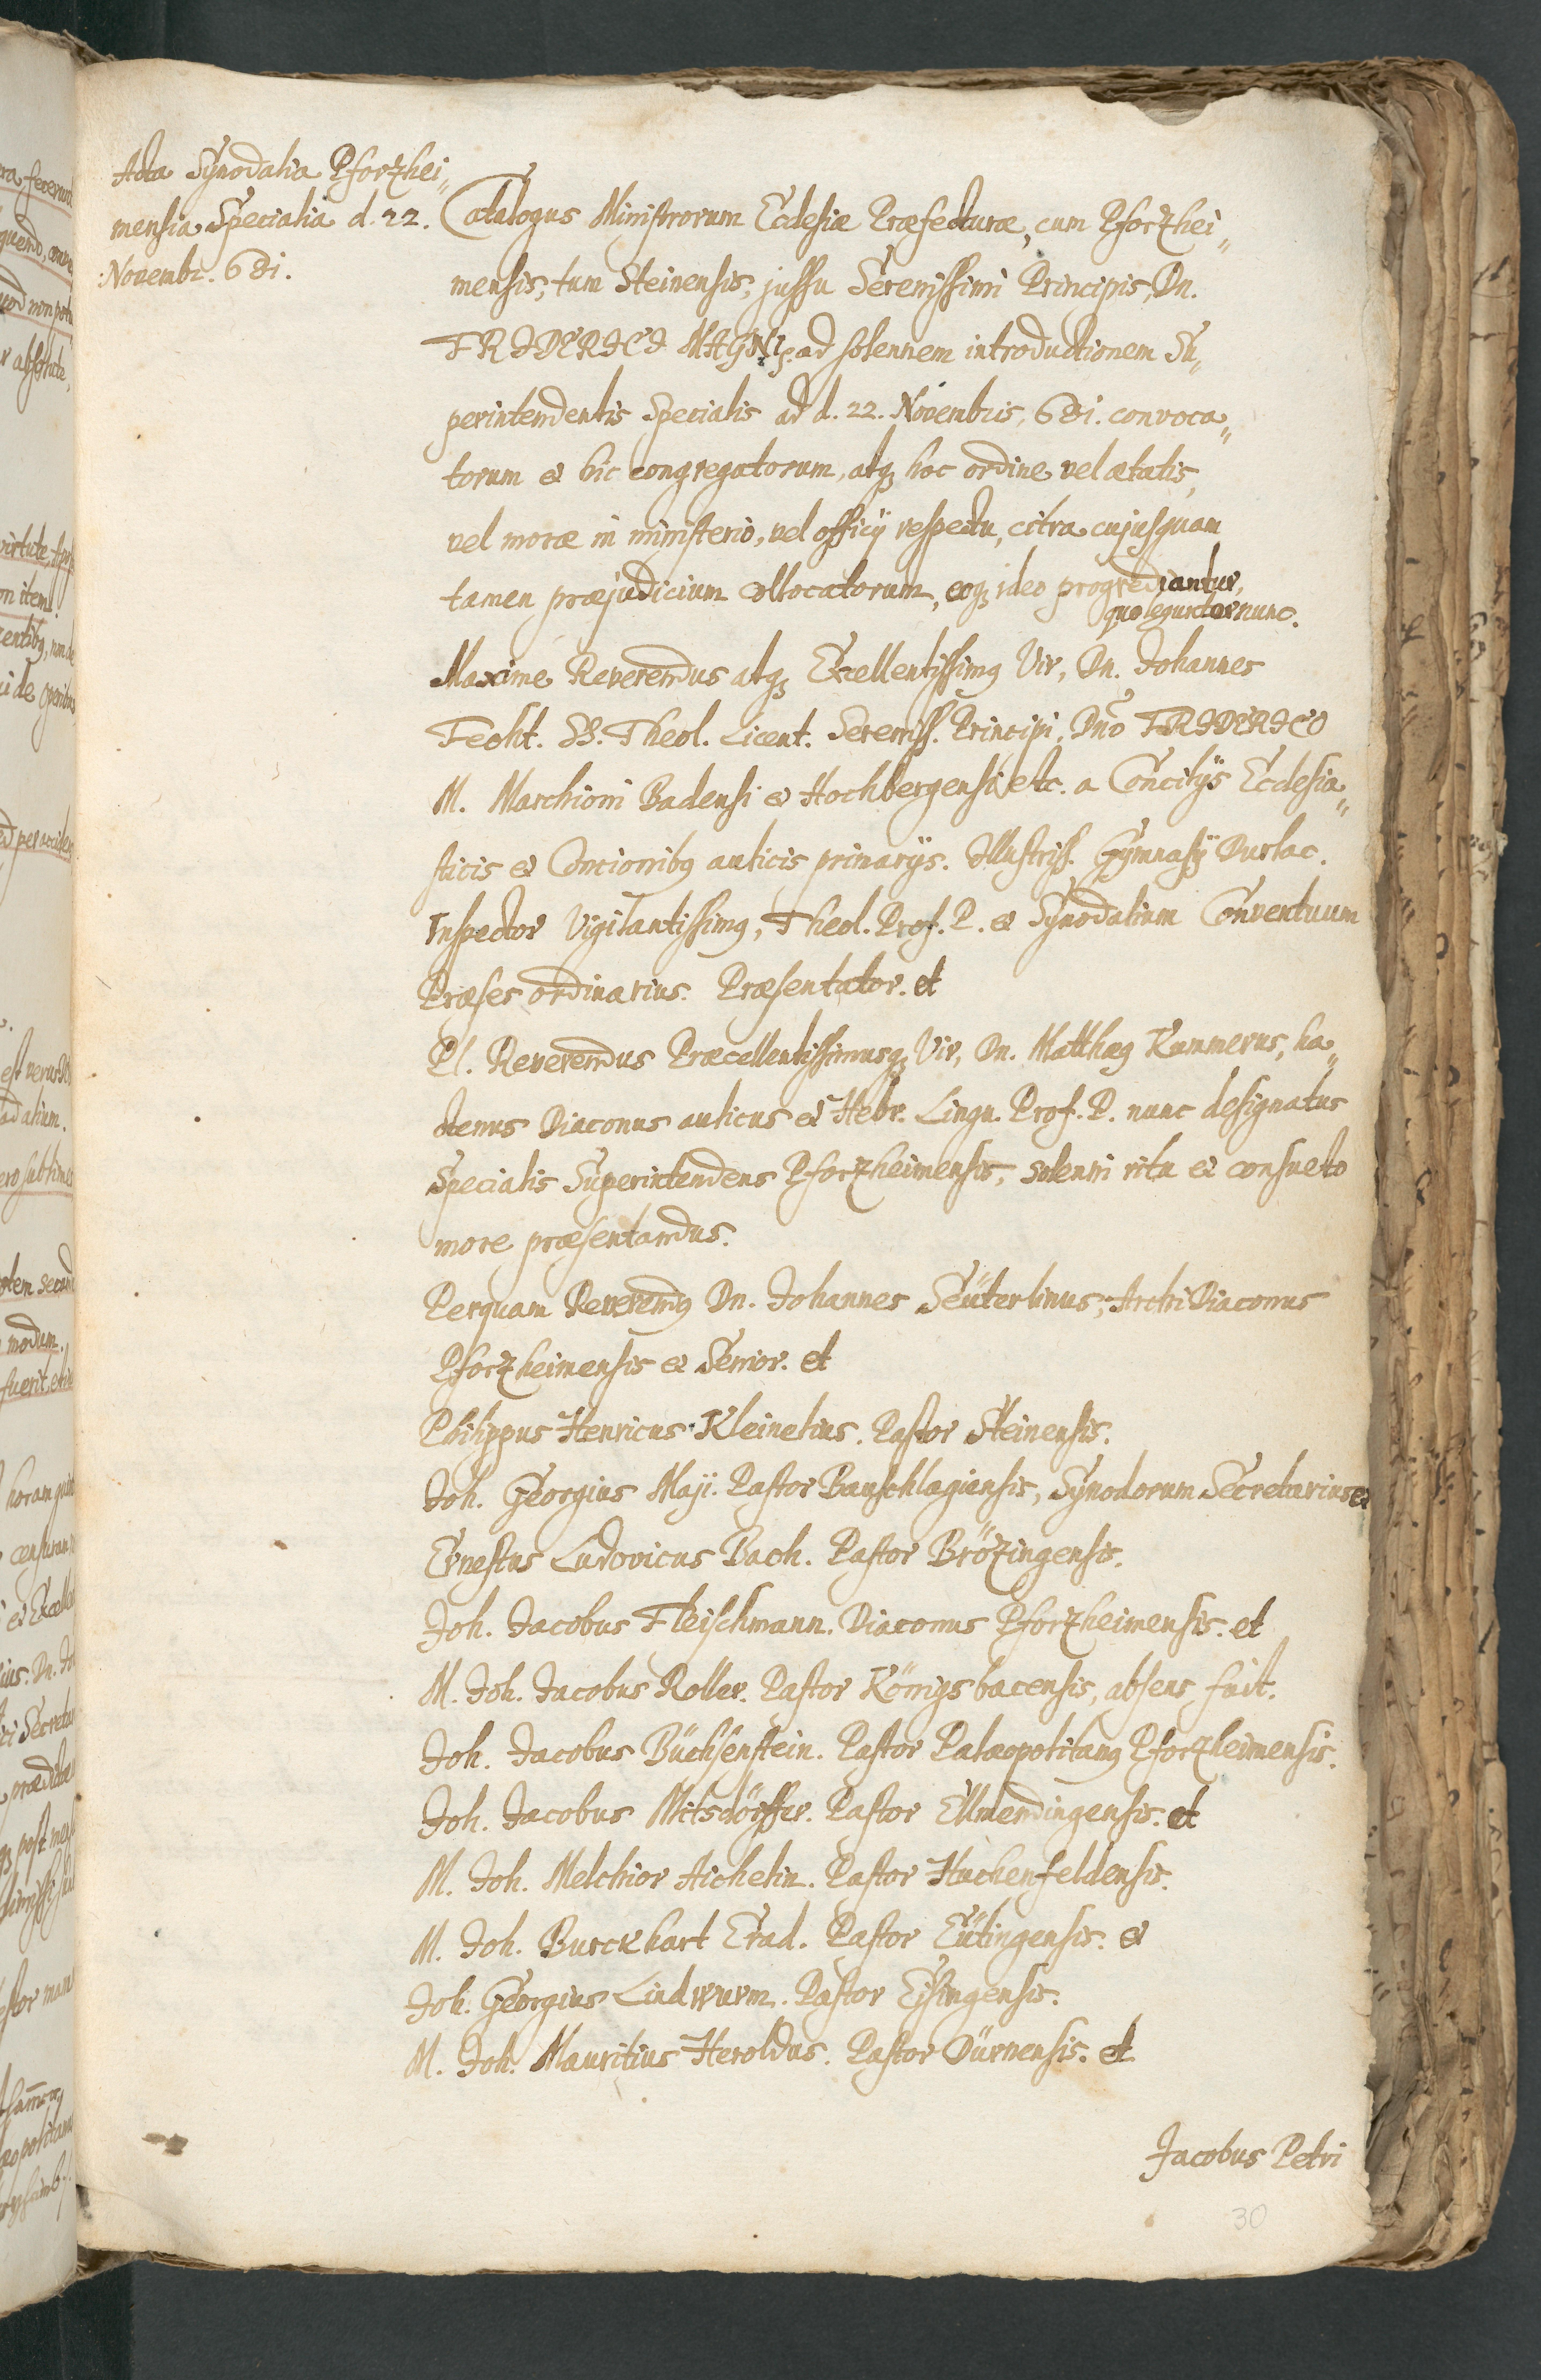 Acta Synodalia Pforzhei„
mensia Specialia d. 22.
Novembr. 681.
Catalogus Ministrorum Ecclesiæ Præfecturæ, cum Pforzhei„
mensis, tum Steinensis, jussu Serenissimi Principis, Dn.
FRIDERICI MAGNI, ad solennem introductionem Su„
perintendentis Specialis ad d. 22. Novembris, 681. convoca„
torum & hic congregatorum, atq; hoc ordine vel ætatis,
vel moræ in ministerio, vel officij respectu, citra cujusquam
tamen præjudicium collocatorum, eoq; ideo progrediantur,
quo leguntur nunc.
Maxime Reverendus atq; Excellentissimg Vir, Dn. Johannes
Fecht. SS. Theol. Licent. Sereniss. Principi, Dno FRIDERICO
M. Marchioni Badensi & Hochbergensi etc. a Concilijs Ecclesia„
sticis & Concionibg aulicis primarijs. Illustriss. Gymnasij Durlac.
Inspector Vigilantissimg, Theol. Prof. P. & Synodalium Conventuum
Præses ordinarius. Præsentator. et
Pl. Reverendus Præcellentissimusq; Vir, Dn. Matthæg Kummerus, ha„
ctenus Diaconus aulicus & Hebr. Lingu. Prof. P. nunc designatus
Specialis Superintendens Pforzheimensis, solenni ritu & consueto
more præsentandus.
Perquam Reverendg Dn. Johannes Seüterlinus, Archi Diaconus
Pforzheimensis & Senior. et
Philippus Henricus Kleinelius. Pastor Steinensis.
Joh. Georgius Maji. Pastor Bauschlagiensis, Synodorum Secretarius &
Ernestus Ludovicus Bach. Pastor Brözingensis.
Joh. Jacobus Fleischmann. Diaconus Pforzheimensis. et
M. Joh. Jacobus Roller. Pastor Königsbacensis, absens fuit.
Joh. Jacobus Büchsenstein. Pastor Palæopolitang Pforzheimensis.
Joh. Jacobus Mitsdörffer. Pastor Ellmendingensis. et
M. Joh. Melchior Aichelin. Pastor Huchenfeldensis.
M. Joh. Burckhart Erad. Pastor Eütingensis. &
Joh. Georgius Lindwurm. Pastor Eisingensis.
M. Joh. Mauritius Heroldus. Pastor Dürnensis. et
Jacobus Petri
30